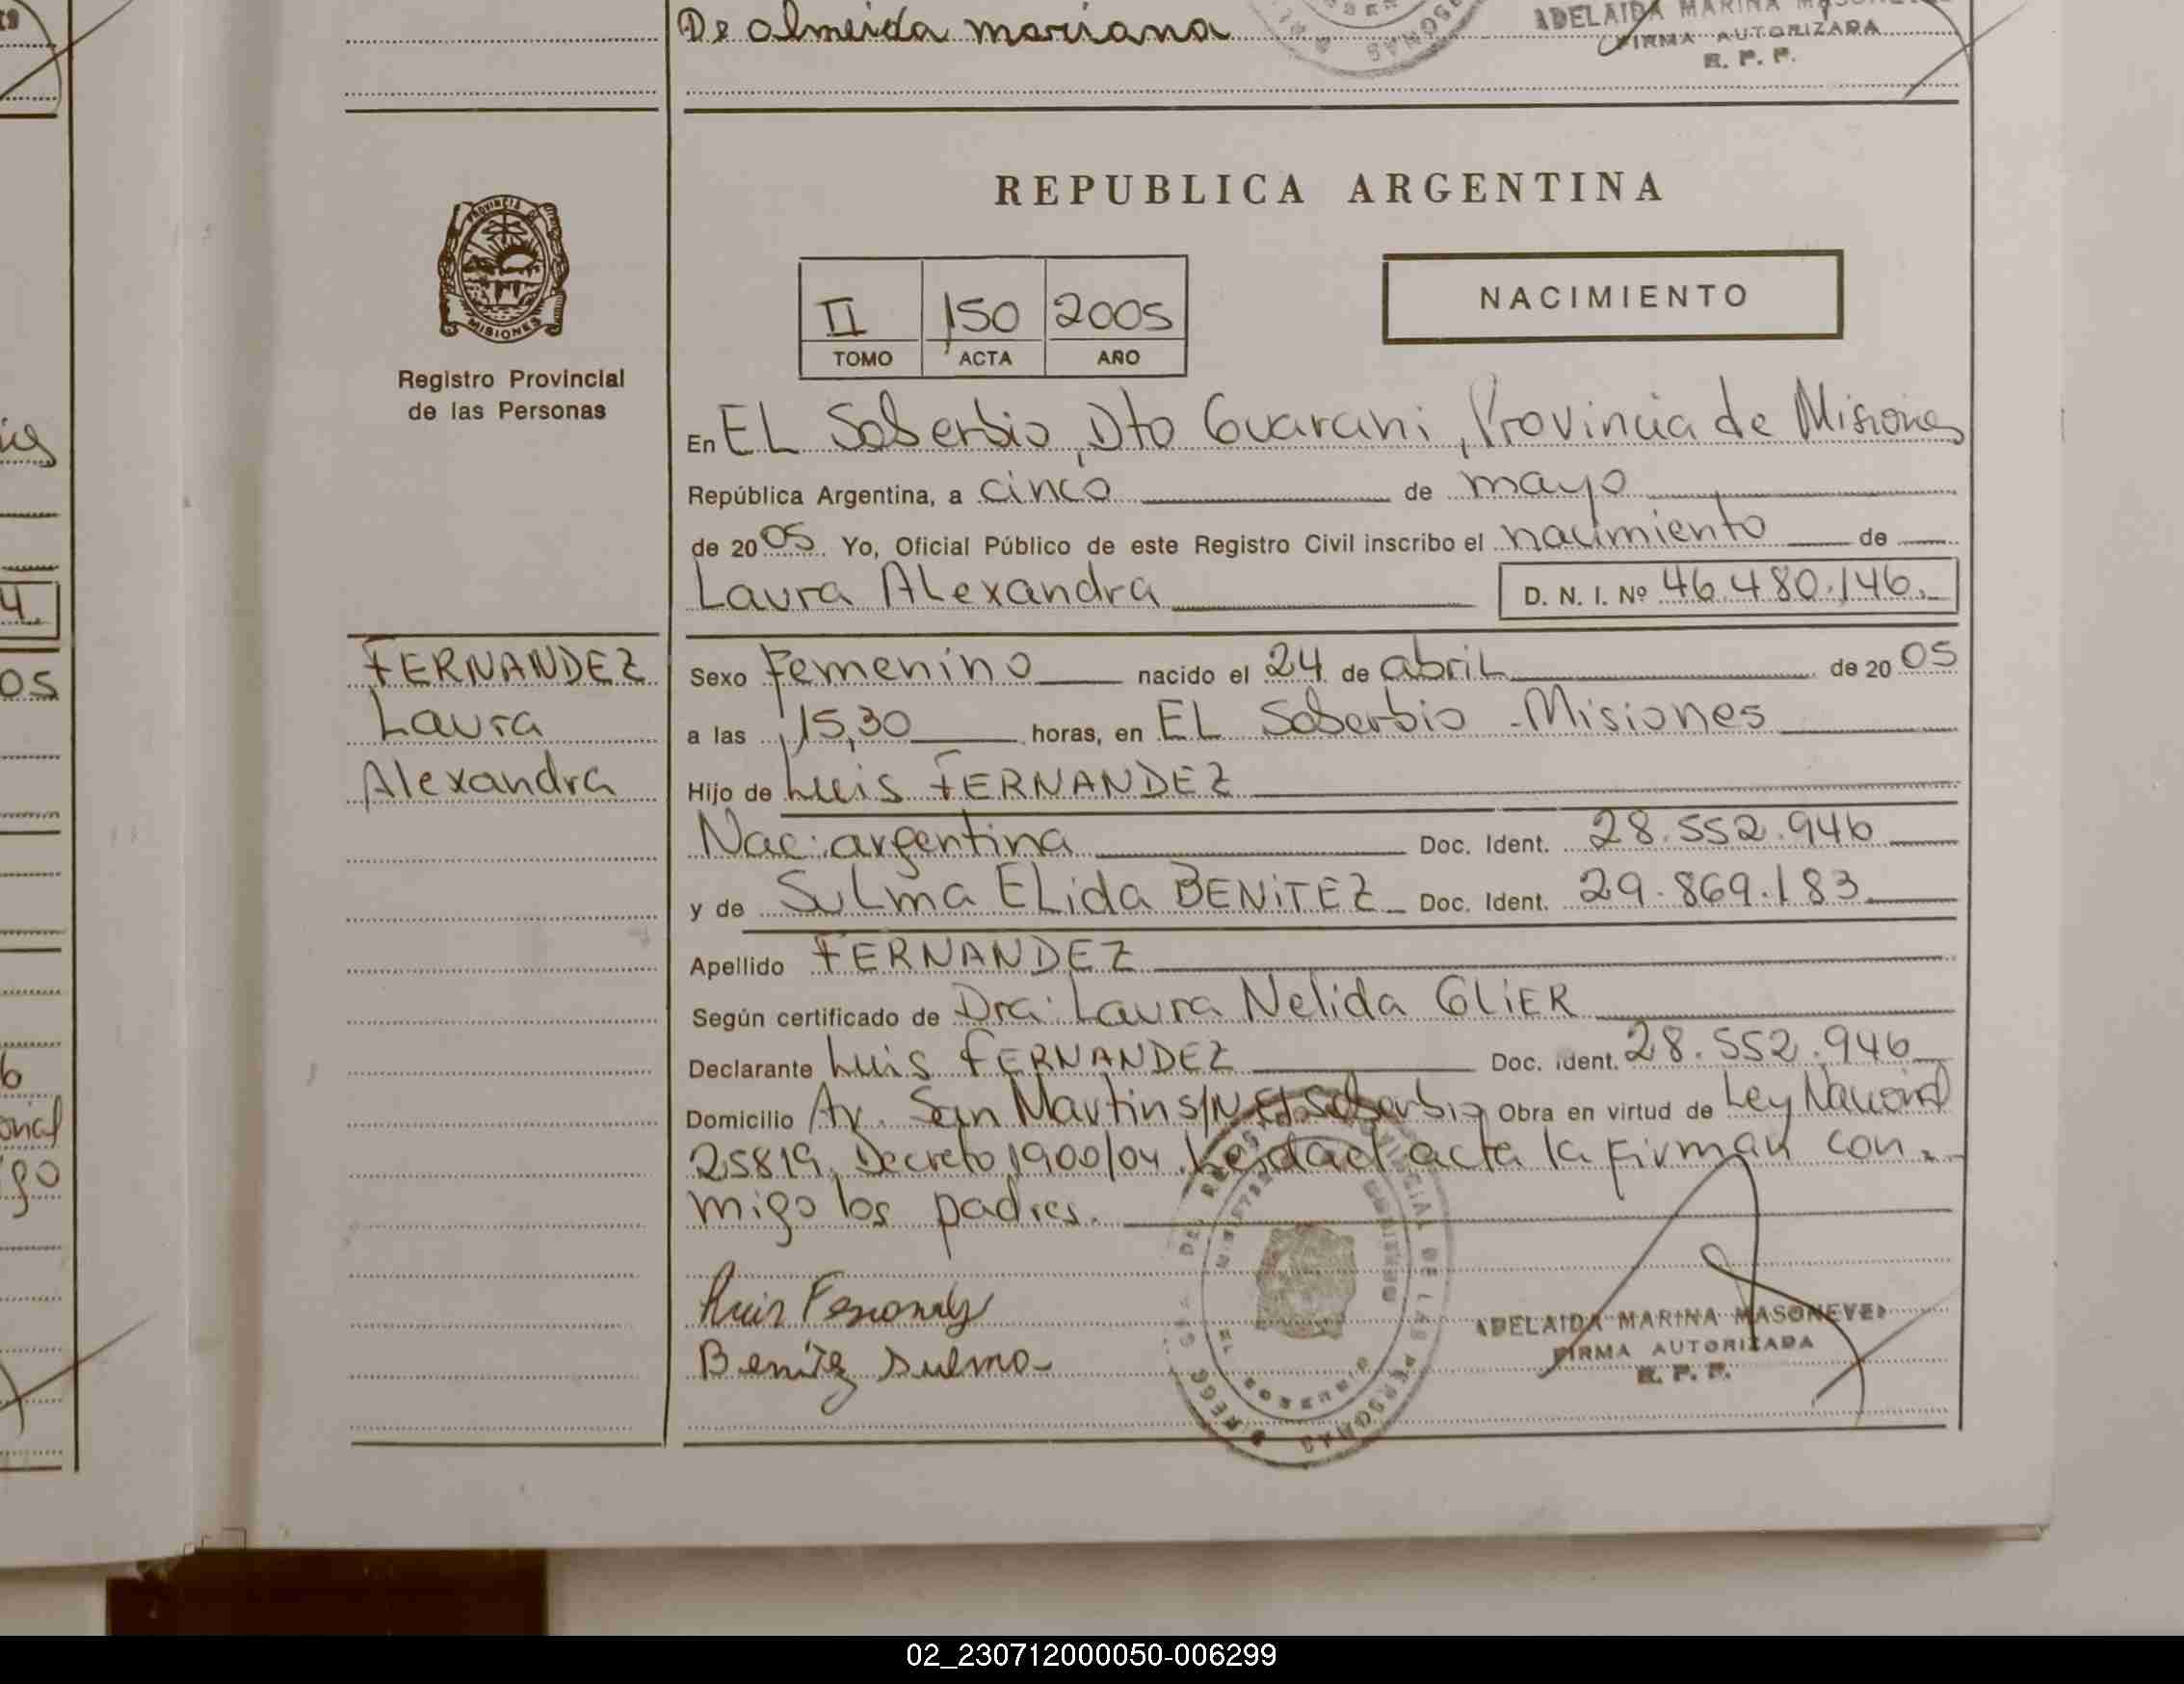 De almeida mariana
ADELAIDA MARINA
FIRMA AUTORIZADA
R. P. P.
REPUBLICA ARGENTINA
PROVINCIA DE
MISIONES
Registro Provincial
de las Personas
II 150 2005
TOMO ACTA AÑO
NACIMIENTO
En EL Soberbio, Dto Guarani, Provincia de Misiones
República Argentina, a cinco de mayo
de 2005 Yo, Oficial Público de este Registro Civil inscribo el nacimiento de
Laura ALexandra D. N. I. Nº 46.480.146.
FERNANDEZ
Laura
Alexandra
Sexo Femenino nacido el 24 de abriL de 2005
a las 15,30 horas, en EL Soberbio - Misiones
Hijo de Luis FERNANDEZ
Nac: argentina Doc. Ident. 28.552.946
y de SuLma ELida BENiTEZ Doc. Ident. 29.869.183
Apellido FERNANDEZ
Según certificado de Dra: Laura Nelida GLiER
Declarante Luis FERNANDEZ Doc. ident. 28.552.946
Domicilio Av. San Martin S/N EL Soberbio Obra en virtud de Ley Nacional
25819, Decreto 1900/04. Leida el acta la firman con-
migo los padres.
Luis Fernandez
Benitez Sulma
ADELAIDA MARINA MASONEVE
FIRMA AUTORIZADA
R. P. P.
02_230712000050-006299